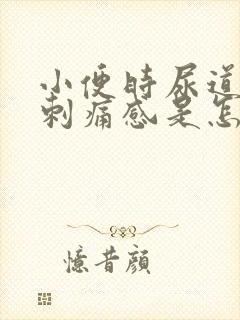 小便时尿道
刺痛感是怎
憶昔顔